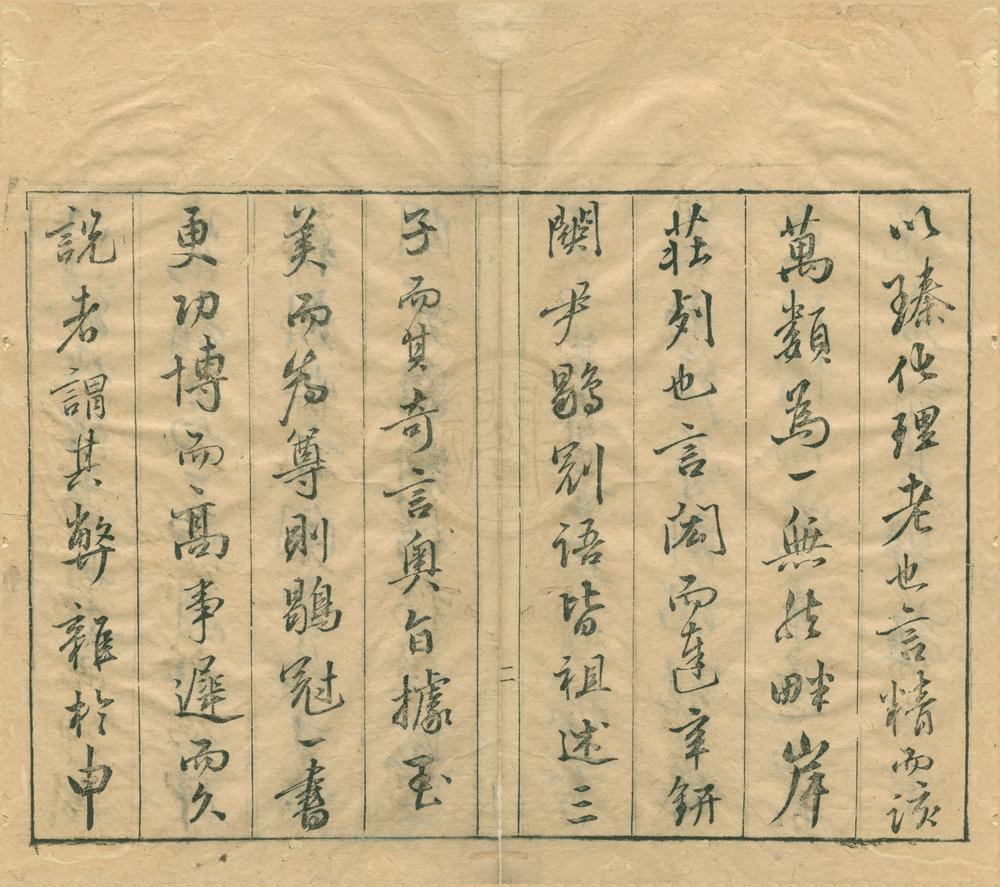 以臻化理老也言精而該
萬類為一無然畔岸
莊列也言閎而達辛鈃
關尹鶡別語皆祖述三
子而其奇言奧旨據至
美而為尊則鶡冠一書
更功博而高事遲而久
說者謂其弊雜於申
二